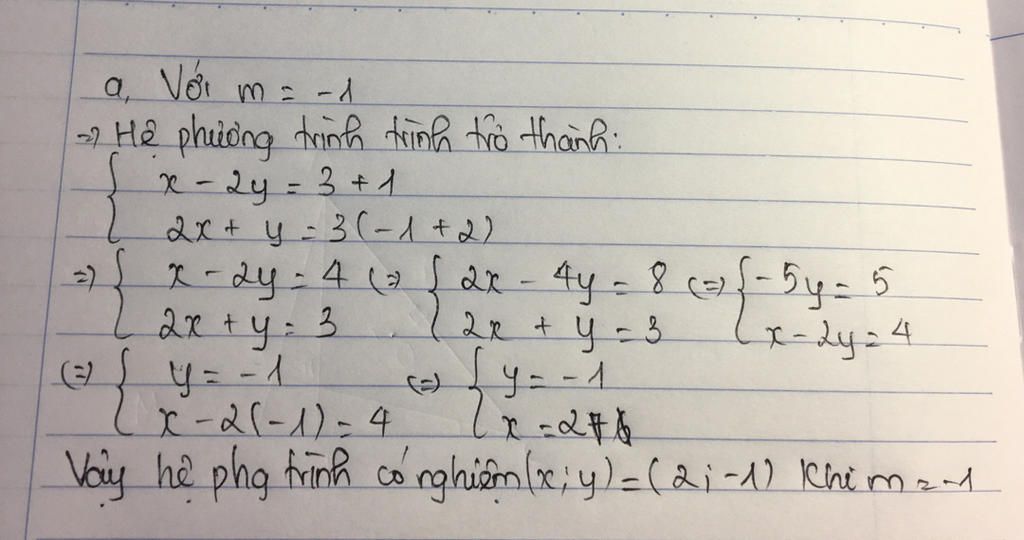 a, Với m = -1
=> Hệ phương trình trình trở thành:
{ x - 2y = 3 + 1
2x + y = 3(-1 + 2)
=> { x - 2y = 4 (=> { 2x - 4y = 8 (=> { -5y = 5
2x + y = 3 { 2x + y = 3 { x - 2y = 4
(=) { y = -1 (=> { y = -1
x - 2(-1) = 4 { x = 2
Vậy hệ phg trình có nghiệm (x; y) = (2; -1) khi m = -1